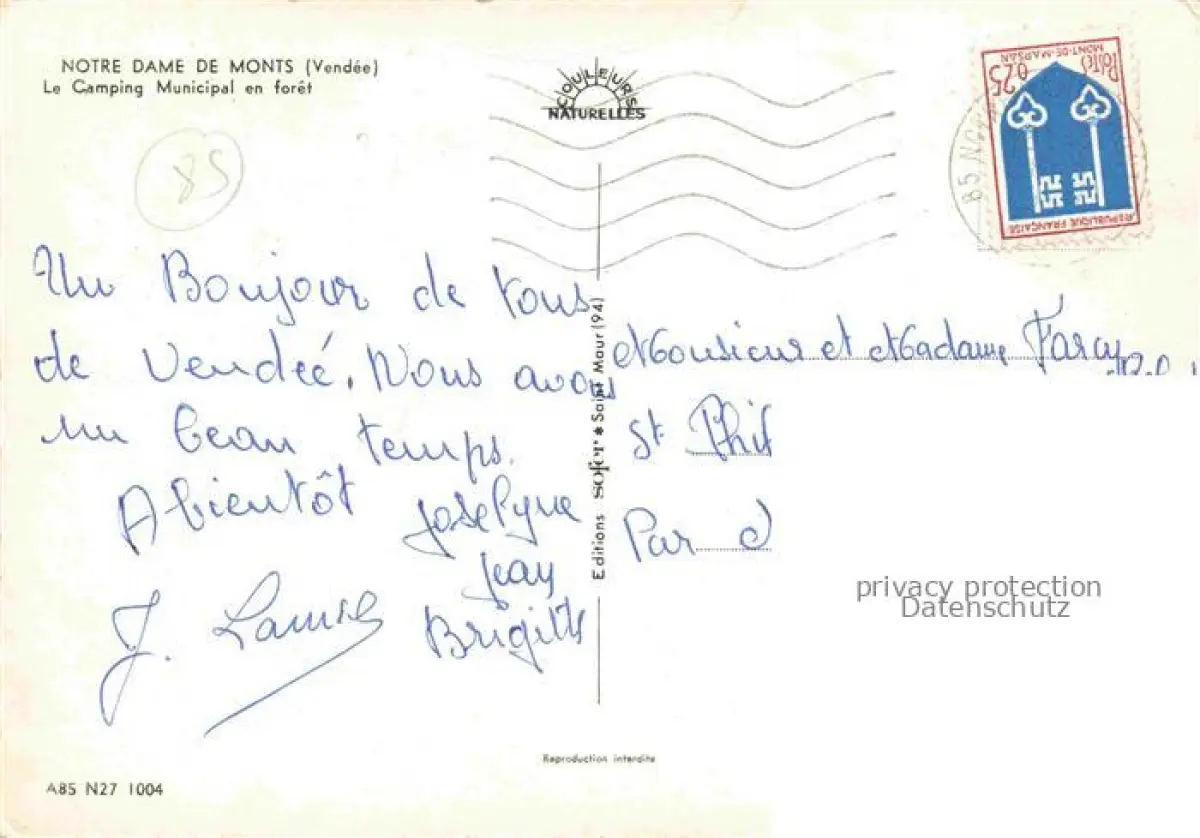 NOTRE DAME DE MONTS (Vendée)
Le Camping Municipal en forêt
COULEURS
NATURELLES
Postes
0,25
MONT-DE-MARSAN
REPUBLIQUE FRANÇAISE
85 NO
85
Un Bonjour de tous
de Vendée. Nous avons
un beau temps.
A bientôt Joselyne
Jean
Brigitte
J.
Editions sofer * Saint Maur (94)
Monsieur et Madame Farcy
St Phil
Par
privacy protection
Datenschutz
Reproduction interdite
A85 N27 1004